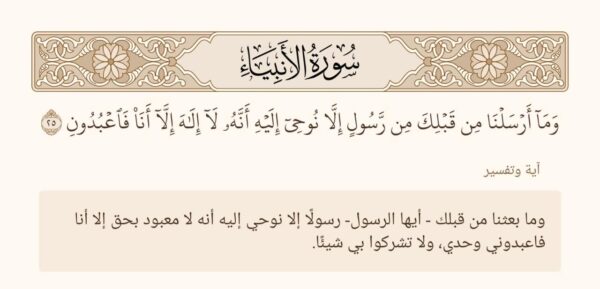 سُورَةُ الأَنبِيَاءِ
وَمَآ أَرْسَلْنَا مِن قَبْلِكَ مِن رَّسُولٍ إِلَّا نُوحِىٓ إِلَيْهِ أَنَّهُۥ لَآ إِلَٰهَ إِلَّآ أَنَا۠ فَٱعْبُدُونِ ٢٥
آية وتفسير
وما بعثنا من قبلك - أيها الرسول- رسولًا إلا نوحي إليه أنه لا معبود بحق إلا أنا
فاعبدوني وحدي، ولا تشركوا بي شيئًا.